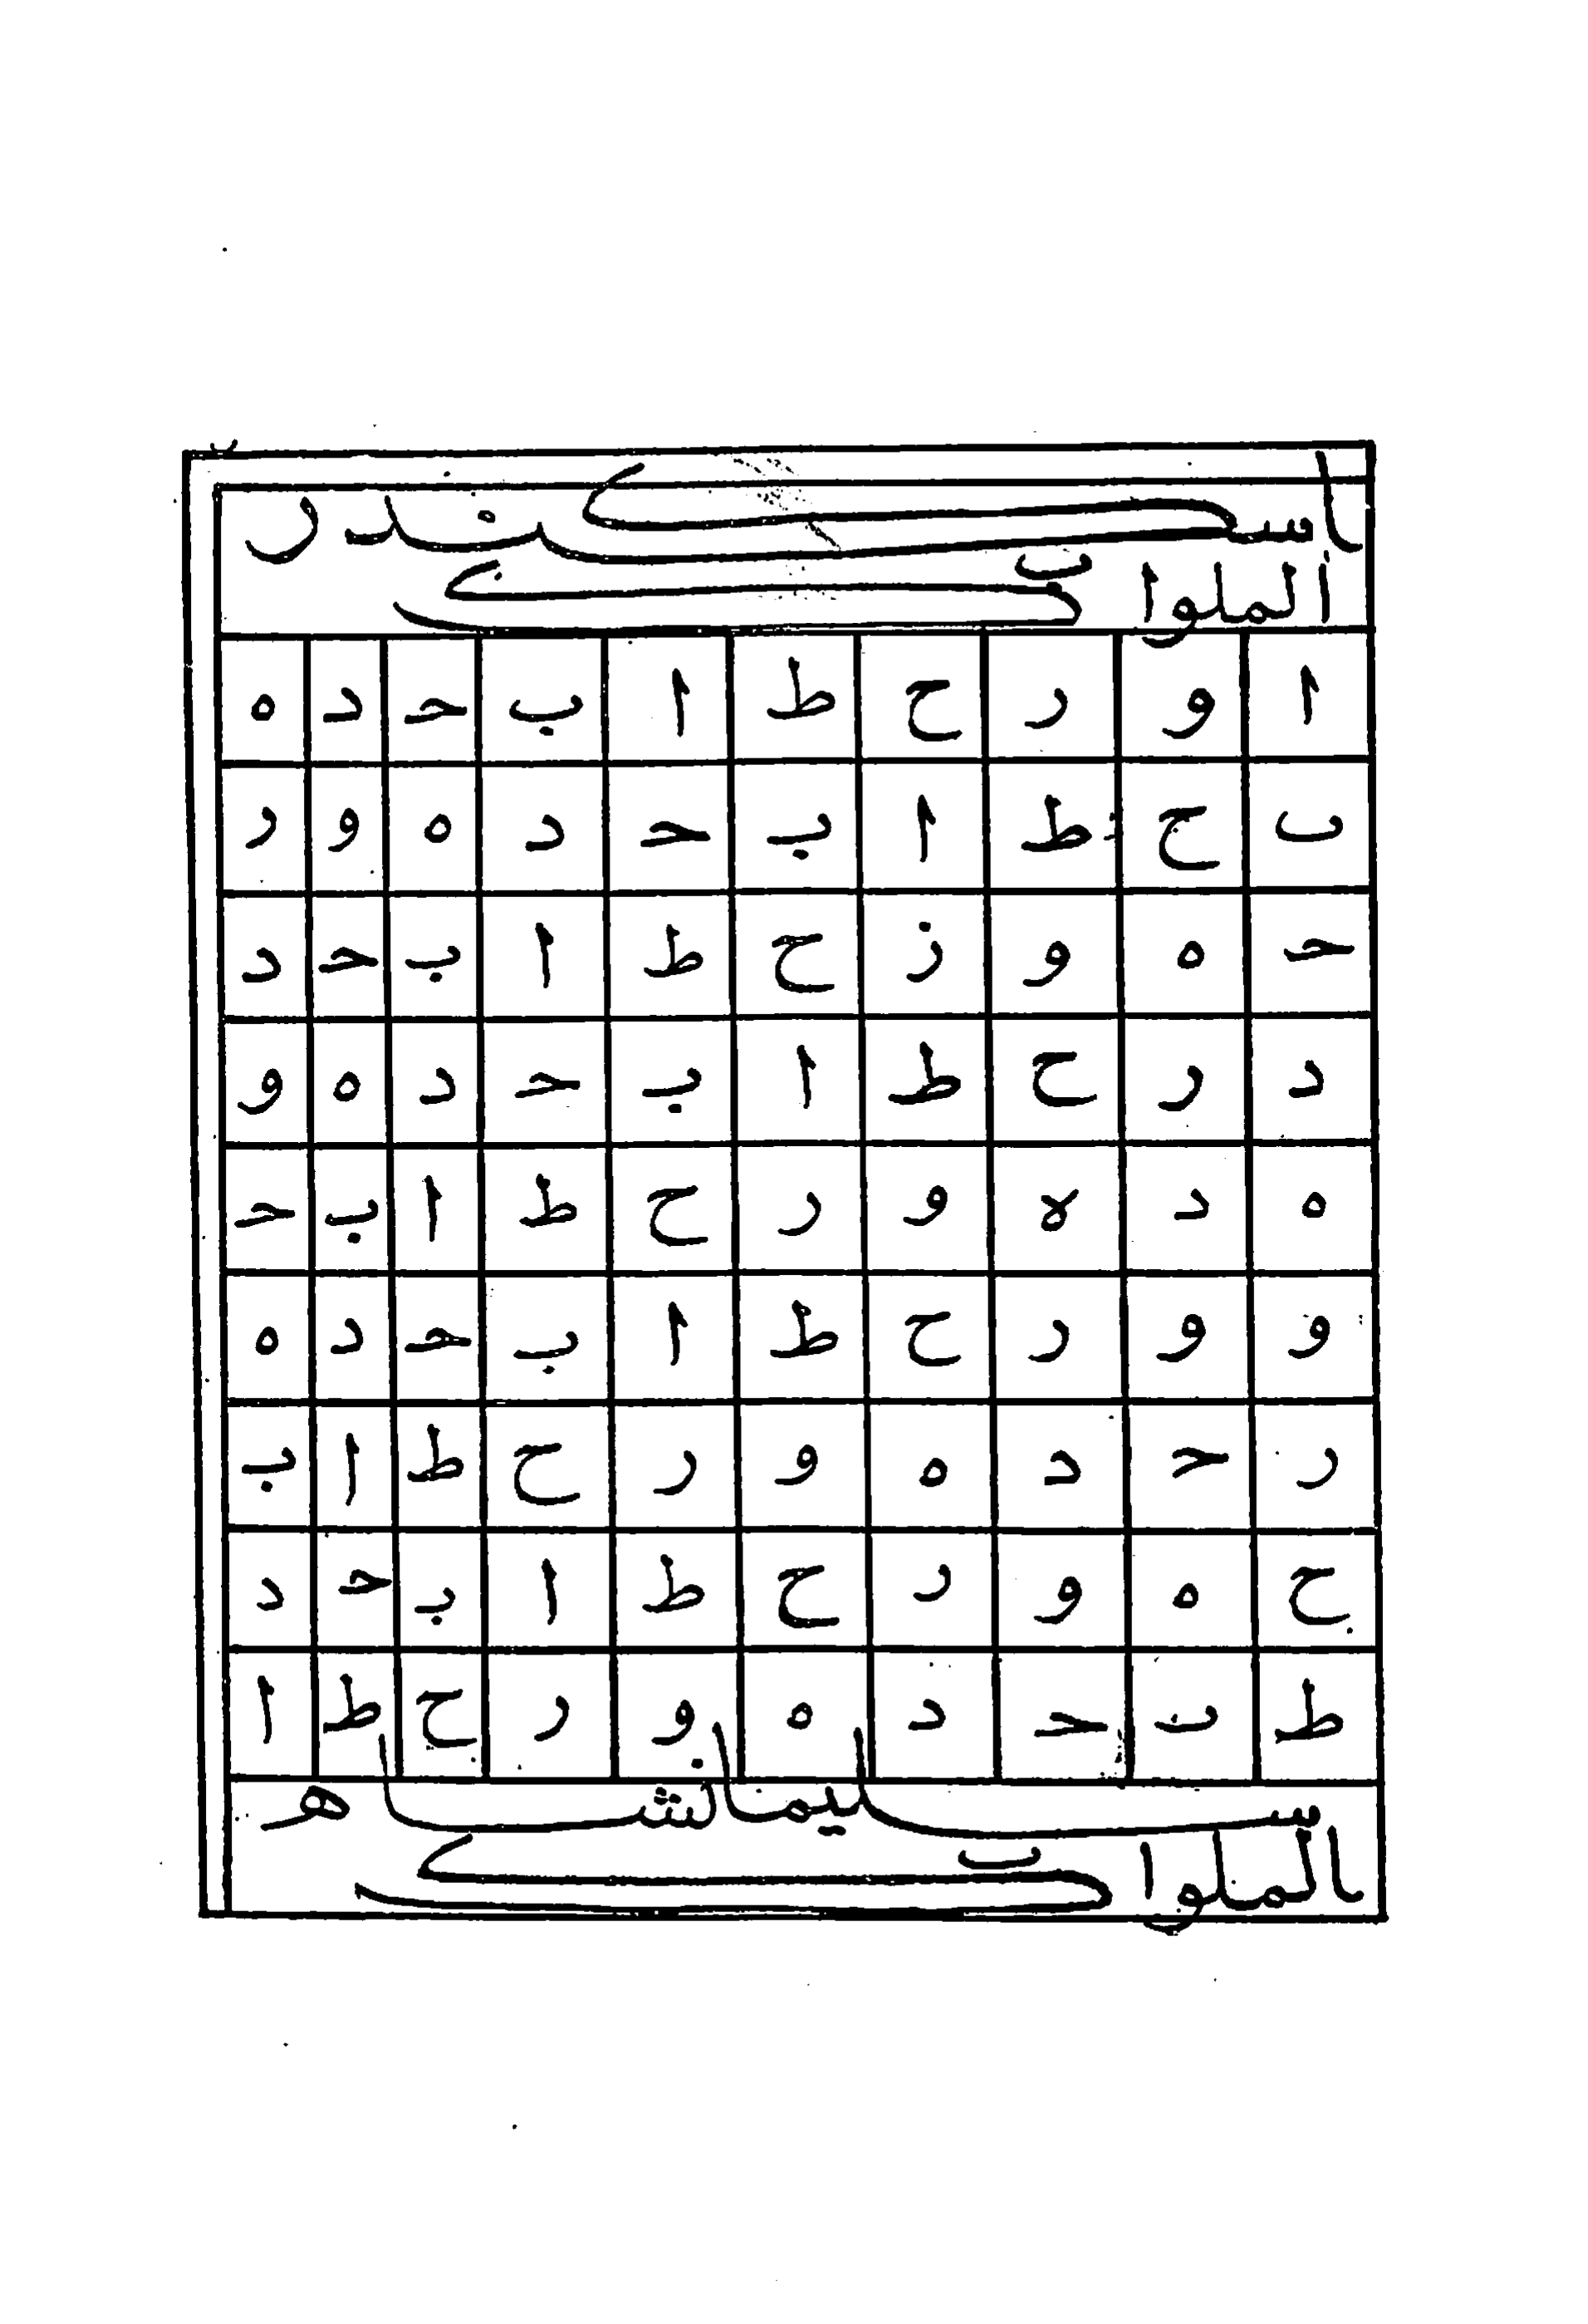 اسكندر
الملوک
ا و ر ح ط ا ب ح د ه
ب ح ط ا ب ح د ه و ر
ح ه و ز ح ط ا ب ح د
د ر ح ط ا ب ح د ه و
ه د ه و ر ح ط ا ب ح
و و ر ح ط ا ب ح د ه
ر ح د ه و ر ح ط ا ب
ح ه و ر ح ط ا ب ح د
ط ب ح د ه و ر ح ط ا
سليمانشاه
الملوک